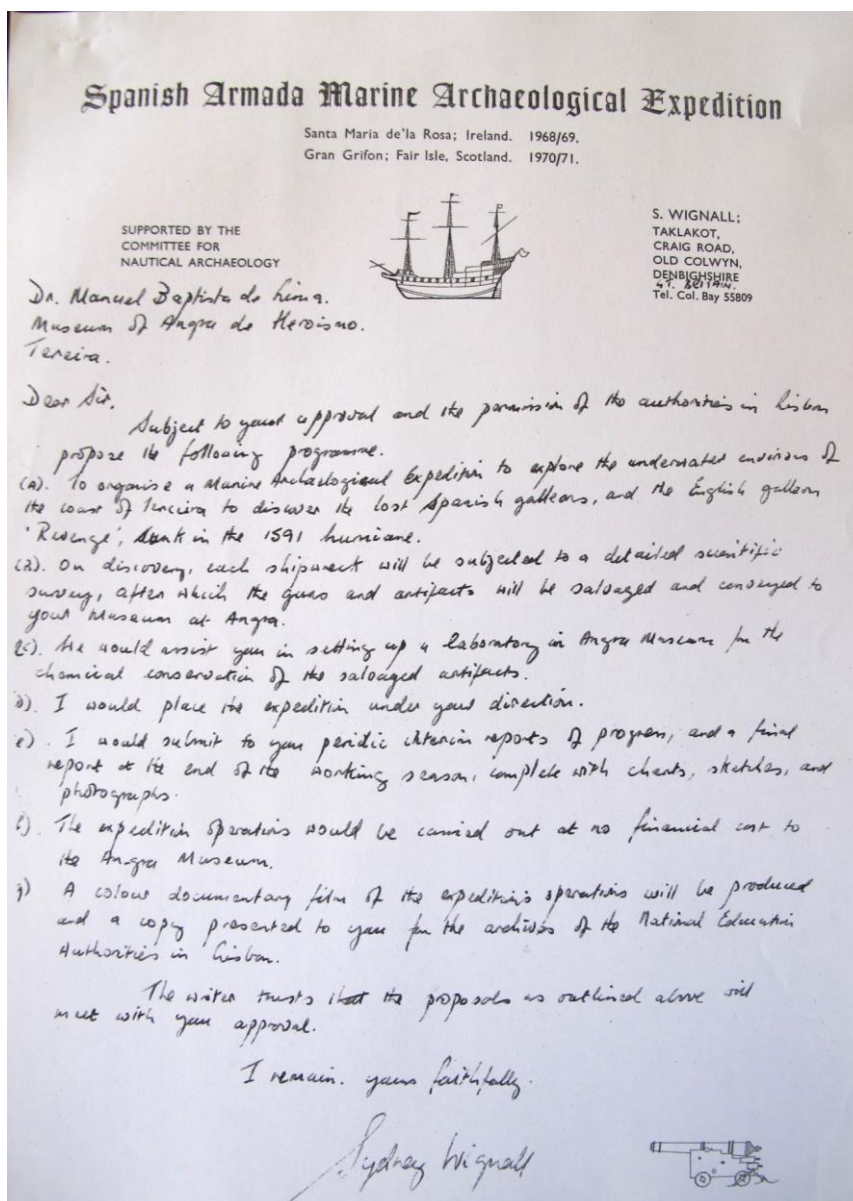 Spanish Armada Marine Archaeological Expedition
Santa Maria de'la Rosa; Ireland. 1968/69.
Gran Grifon; Fair Isle, Scotland. 1970/71.
SUPPORTED BY THE
COMMITTEE FOR
NAUTICAL ARCHAEOLOGY
S. WIGNALL;
TAKLAKOT,
CRAIG ROAD,
OLD COLWYN,
DENBIGHSHIRE
GT. BRITAIN.
Tel. Col. Bay 55809
Dr. Manuel Baptista de Lima.
Museum of Angra de Heroismo.
Terceira.
Dear Sir,
Subject to your approval and the permission of the authorities in Lisbon
propose the following programme.
(a). To organise a Marine Archaelogical Expedition to explore the underwater environs of
the coast of Terceira to discover the lost Spanish galleons, and the English galleon
'Revenge', sunk in the 1591 hurricane.
On discovery, each shipwreck will be subjected to a detailed scientific
survey, after which the guns and artifacts will be salvaged and conveyed to
your Museum at Angra.
(c). We would assist you in setting up a laboratory in Angra Museum for the
chemical conservation of the salvaged artifacts.
d). I would place the expedition under your direction.
e). I would submit to you periodic interim reports of progress, and a final
report at the end of the working season, complete with charts, sketches, and
photographs.
f). The expedition operations would be carried out at no financial cost to
the Angra Museum.
g) A colour documentary film of the expeditions operations will be produced
and a copy presented to you for the archives of the National Education
Authorities in Lisbon.
The writer trusts that the proposals as outlined above will
meet with your approval.
I remain. yours faithfully.
Sydney Wignall